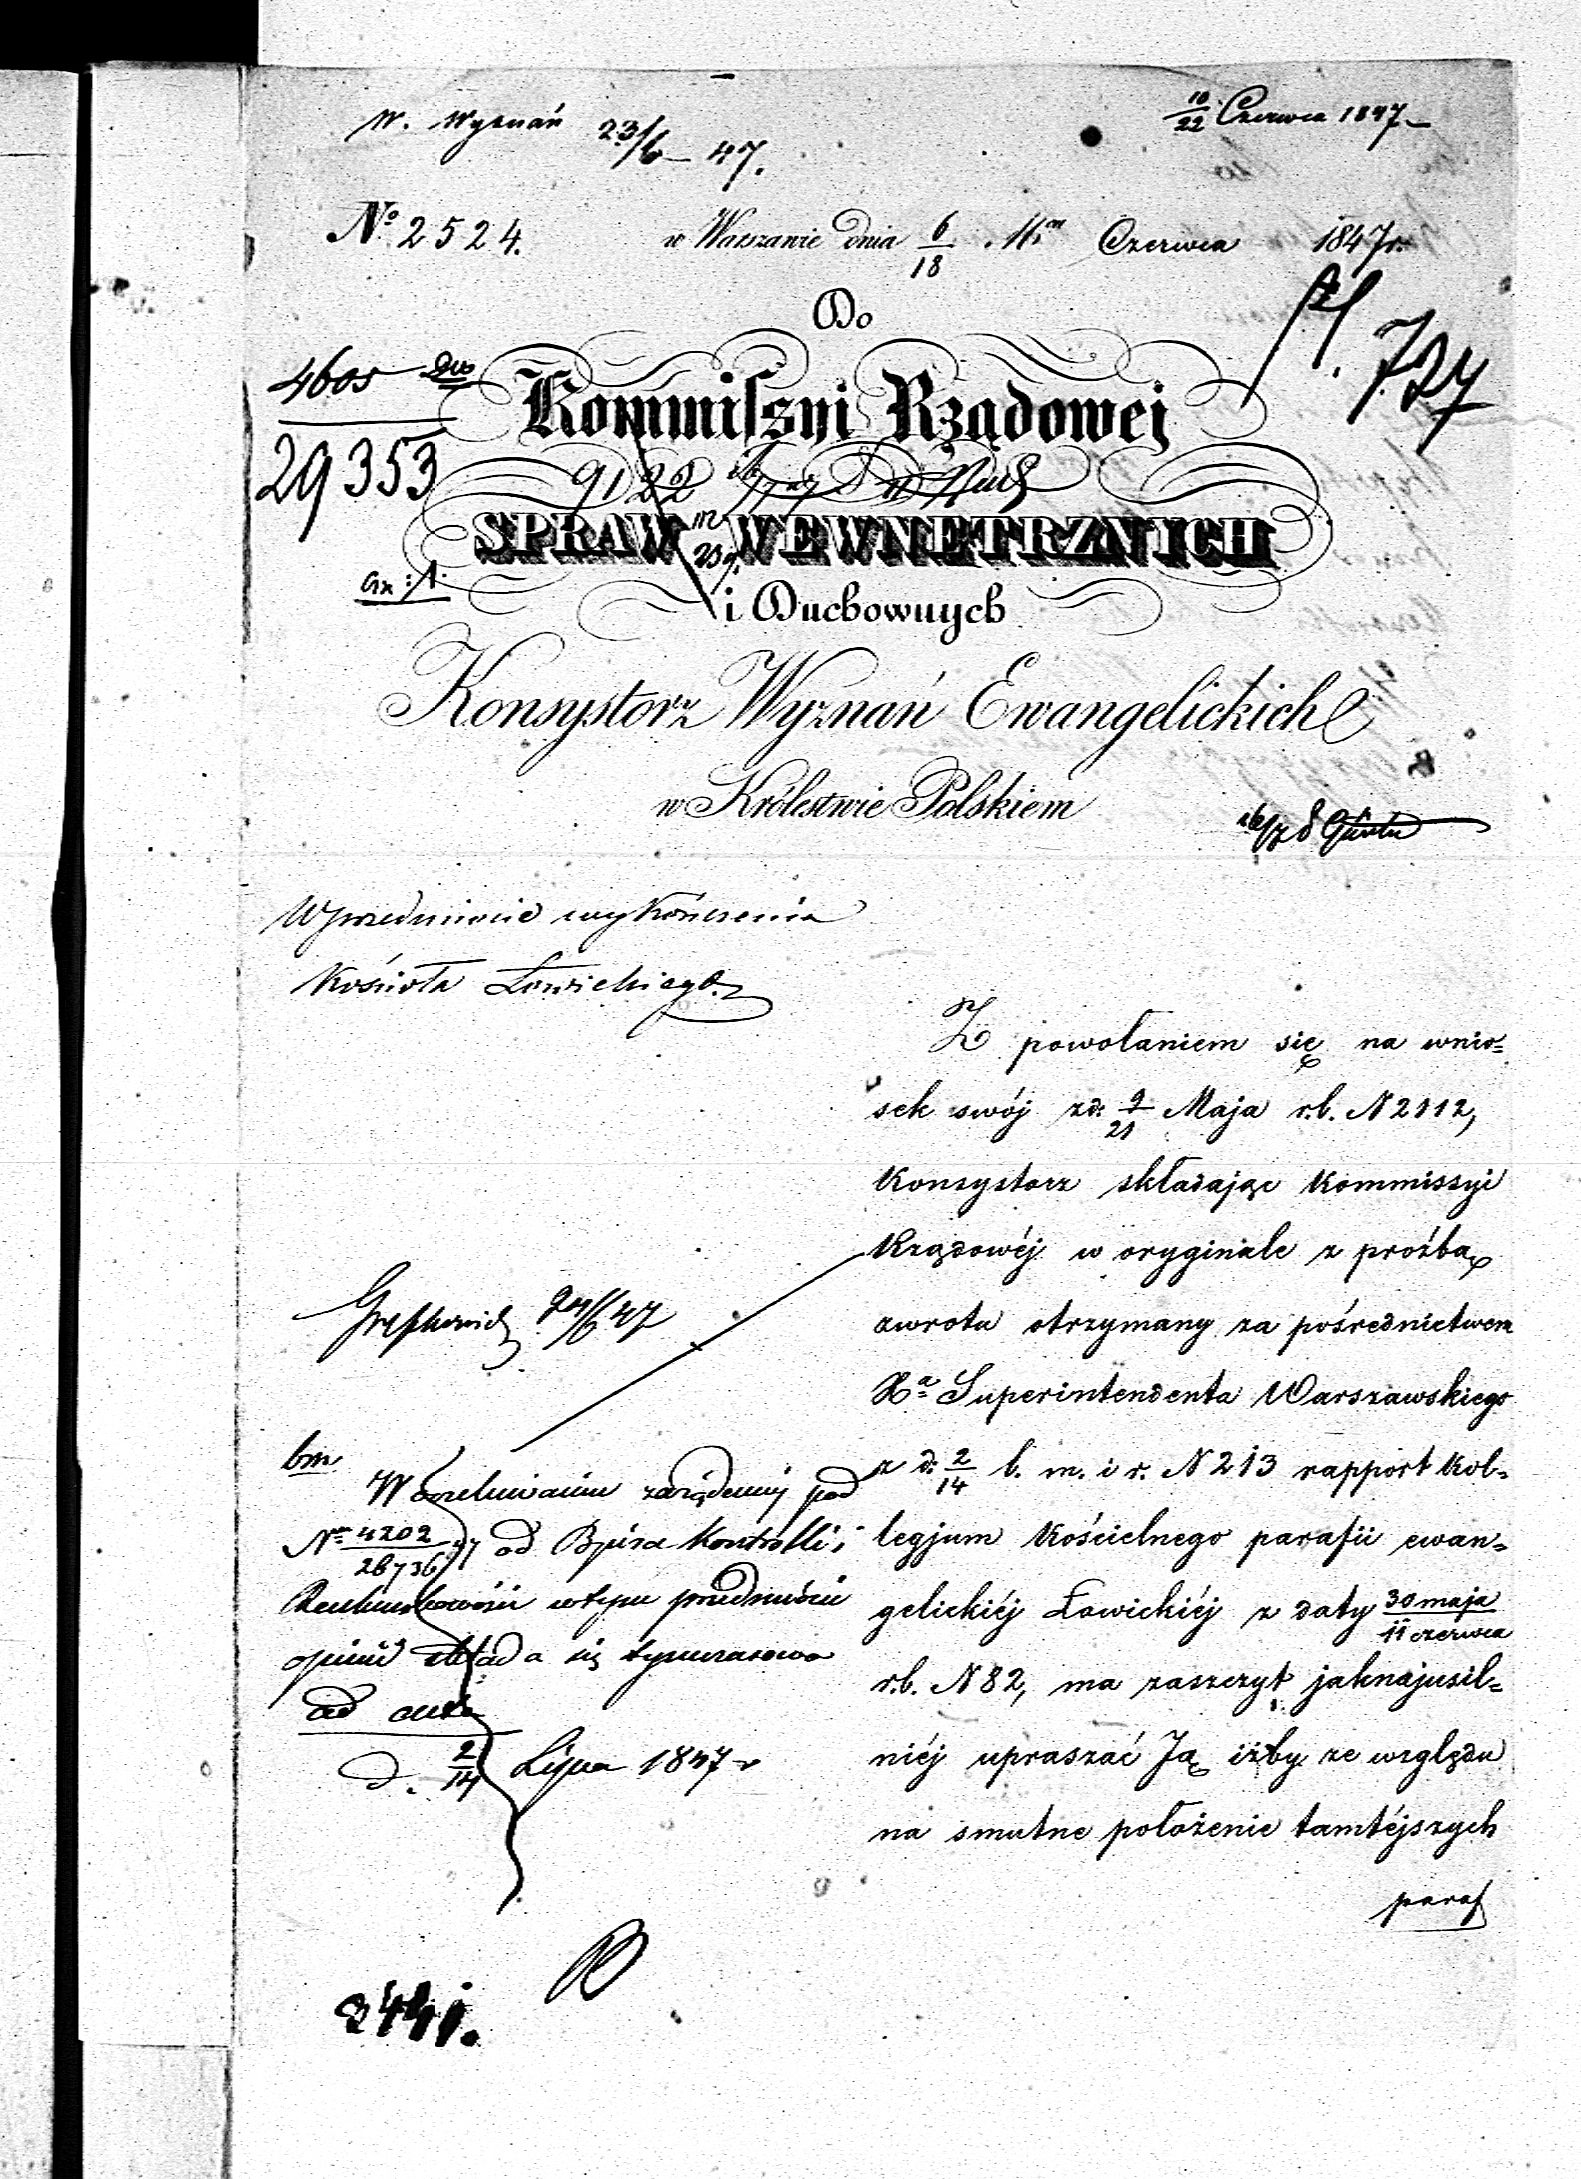 W. Wyznań 23/6 47.
10/22 Czerwca 1847
№ 2524. w Warszawie dnia 6/18 Mca Czerwca 1847 r.
Do
4605
29353
727
Kommissyi Rządowej
9122
SPRAW WEWNĘTRZNYCH
i Duchownych
Konsystorz Wyznań Ewangelickich
w Królestwie Polskiem
W przedmiocie wykończenia
Kościoła Łowickiego.
Z powołaniem się na wnio=
sek swój z d: 9/21 Maja r.b. N 2112,
Konsystorz składając Kommissyi
Rządowéj w oryginale z proźbą
zwrotu otrzymany za pośrednictwem
Xa Superintendenta Warszawskiego
z d: 2/14 b. m. i r. N 213 rapport Kol=
legjum Kościelnego parafii ewan=
gelickiéj Łowickiéj z daty 30 maja/11 czerwca
r.b. N 82, ma zaszczyt jaknajusil=
niéj upraszać Ją iżby ze względu
na smutne położenie tamtéjszych
paraf
24/6 47
W oczekiwaniu żądanéj pod
Nr 4202/26736 od Bióra Kontrolli i
Rachunkowości w tym przedmiocie
opinii składa się tymczasowo
ad acta
d. 2/14 Lipca 1847 r